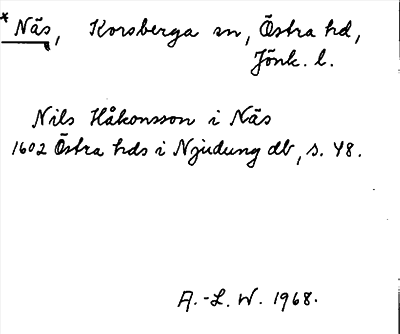 * Näs, Korsberga sn, Östra hd,
Jönk. l.
Nils Håkonsson i Näs
1602 Östra hds i Njudung db, s. 48.
A.-L. W. 1968.